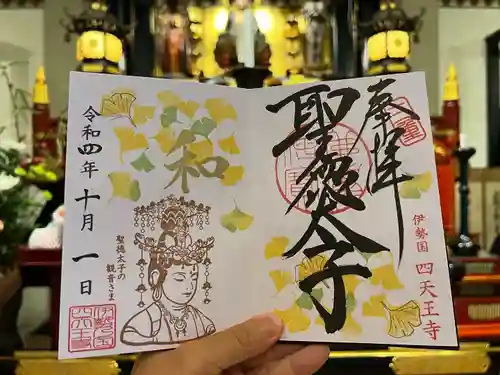 奉拝
聖徳太子
伊勢国 四天王寺
和
令和四年十月一日
聖徳太子の
観音さま